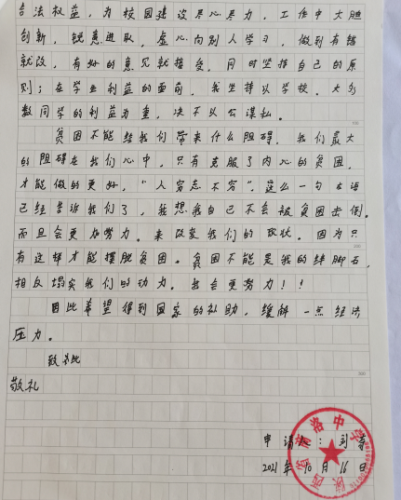 合法权益，为校园建设尽心尽力，工作中大胆
创新，锐意进取，虚心向别人学习，做到有错
就改，有好的意见就接受，同时坚持自己的原
则；在学生利益的面前，我坚持以学校、大多
数同学的利益为重，决不以公谋私。
贫困不能给我们带来什么阻碍，我们最大
的阻碍在我们心中，只有克服了内心的贫困，
才能做的更好，“人穷志不穷”，这么一句古话
已经告诉我们了，我想我自己不会被贫困击倒。
而且会更加努力。来改变我们的现状。因为只
有这样才能摆脱贫困。贫困不能是我的绊脚石
相反增实我们的动力。我会更努力！！
因此希望得到国家的补助，缓解一点经济
压力。
致此
敬礼
申请人：刘
2021年10月16日